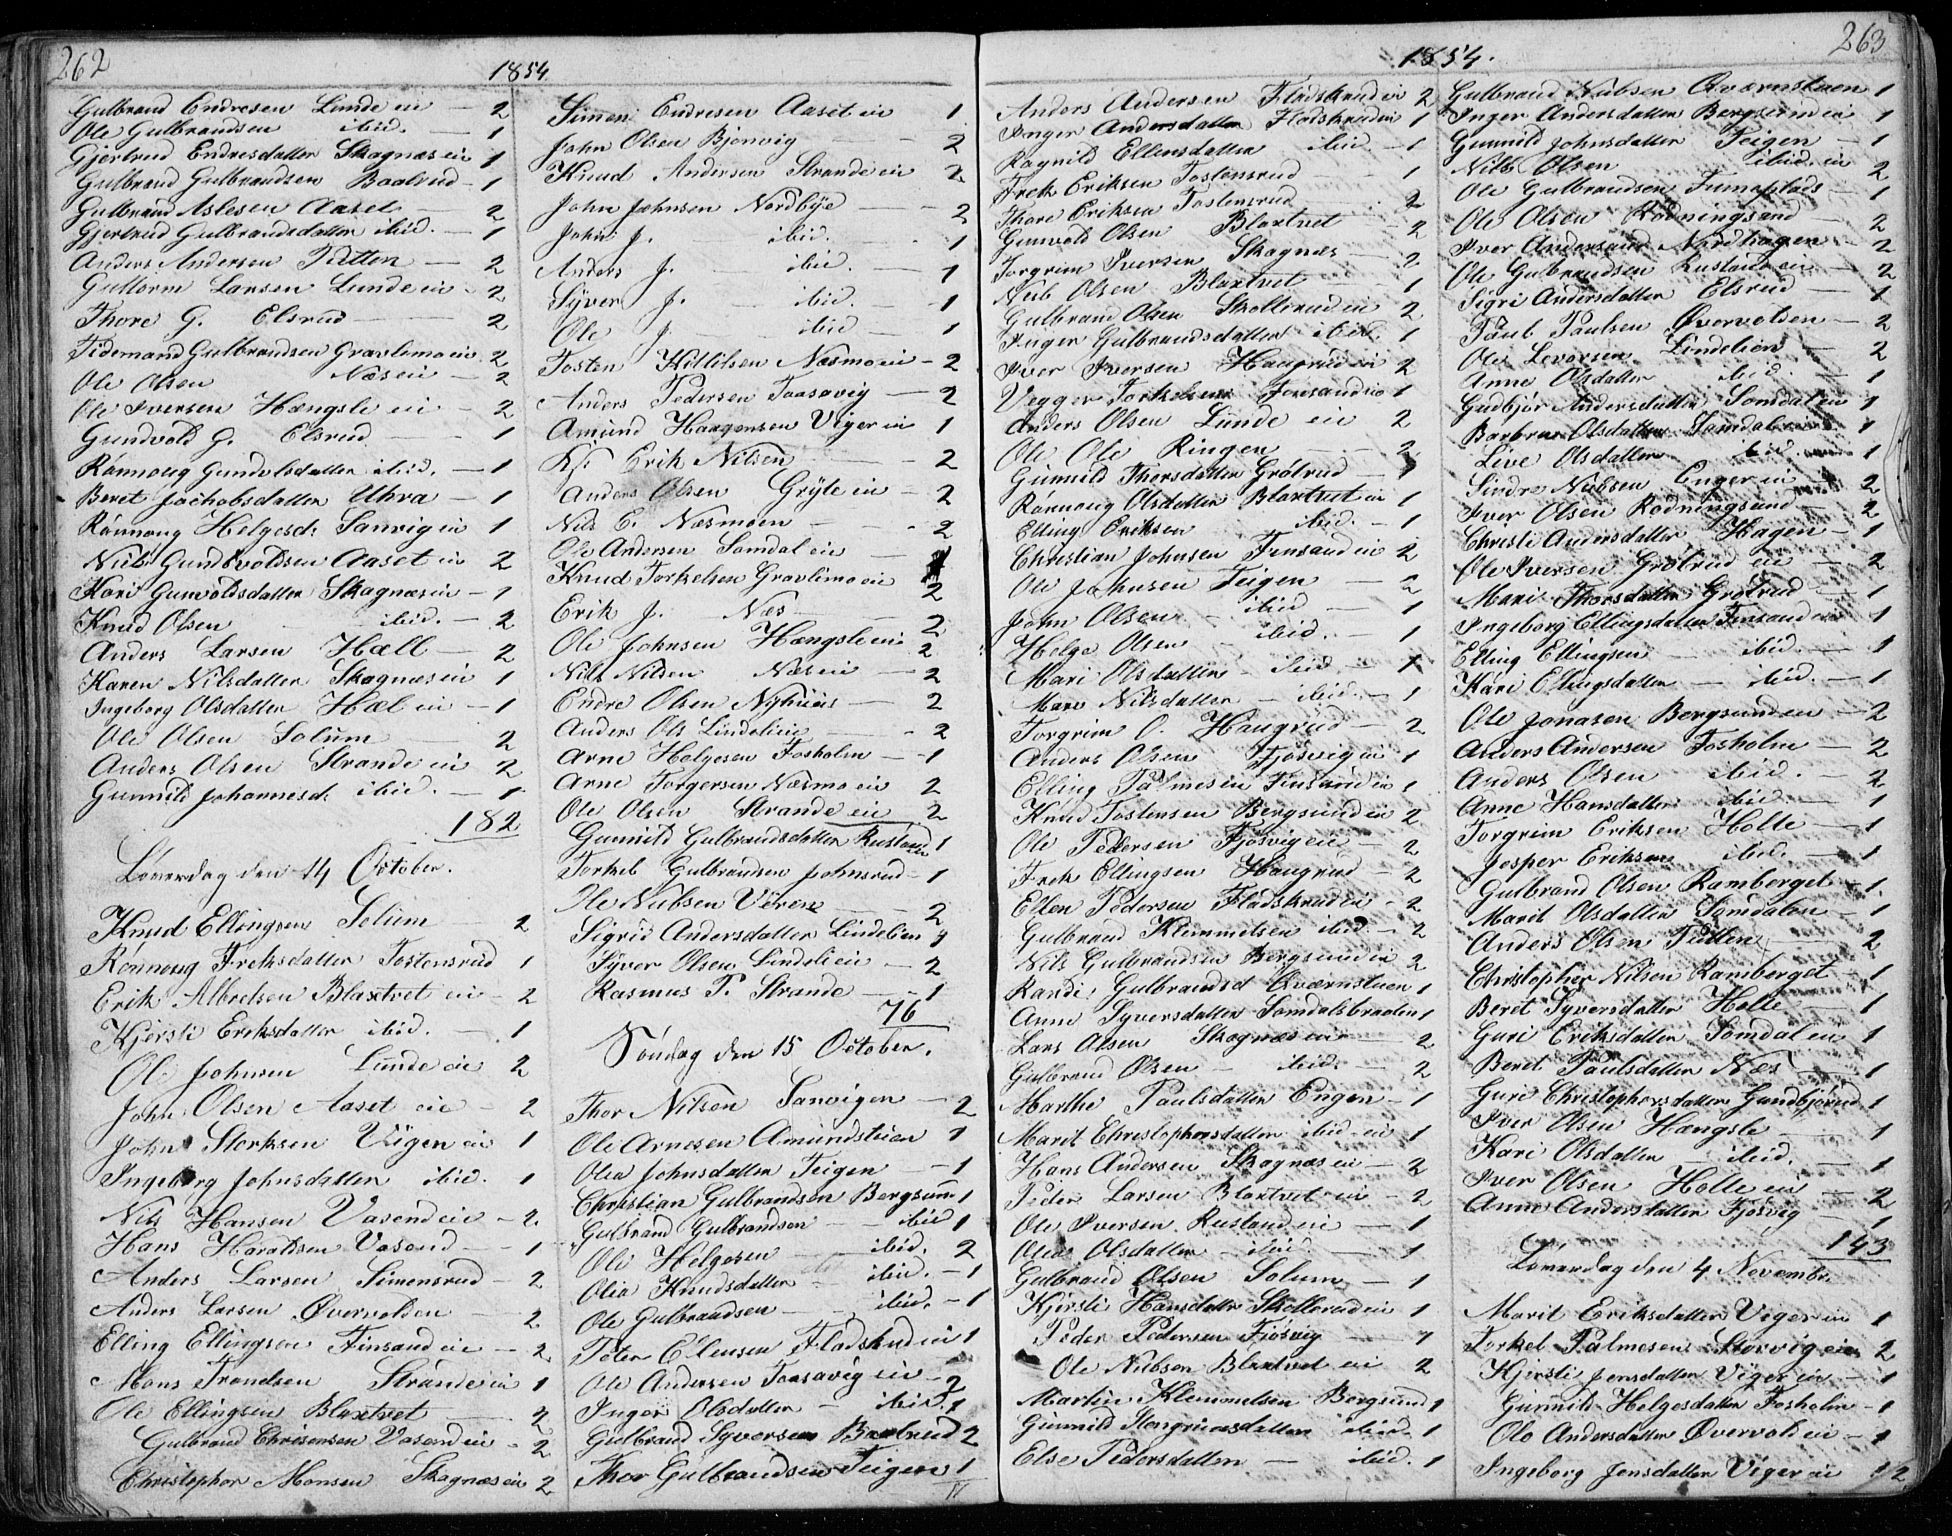 262
1854
Gulbrand Endresen Lunde eie - 2
Ole Gulbrandsen ibid. - 1
Gjertrud Endresdatter Skagnæs eie 1
Gulbrand Gulbrandsen Baalrud - 1
Gulbrand Aslesen Aaset - 2
Gjertrud Gulbrandsdatter ibid. - 1
Anders Andersen Tutten - 2
Guttorm Larsen Lunde eie - 2
Thore G. Elsrud - 2
Tidemand Gulbrandsen Gravlimo eie 2
Ole Olsen Næs eie - 2
Ole Iversen Hængsle eie - 2
Gundvold G. Elsrud - 1
Rønnoug Gundvolsdatter ibid. - 1
Beret Jachobsdatter Uhra - 1
Rønnoug Helgesd: Sanvig eie 1
Niels Gundvoldsen Aaset eie 2
Kari Gunvoldsdatter Skagnæs eie - 1
Knud Olsen ibid. - 2
Anders Larsen Hæll - 2
Karen Nilsdatter Skagnæs eie 1
Ingeborg Olsdatter Hæl eie - 1
Ole Olsen Solum 2
Anders Olsen Strande eie 2
Gunnild Johannesd: ibid. - 1
182
Løverdag den 14 October.
Knud Ellingsen Solum 2
Rønnoug Freksdatter Tostensrud 1
Erik Albretsen Blaxtvet eie - 2
Kjersti Eriksdatter ibid. - 1
Ole Johnsen Lunde eie 2
John Olsen Aaset eie - 2
John Storksen Viger eie 1
Ingeborg Johnsdatter ibid. 1
Nils Hansen Vasend eie - 2
Hans Haraldsen Vasend - 1
Anders Larsen Simensrud - 2
Anders Larsen Øvervolden - 2
Elling Ellingsen Finsand eie - 2
Mons Trondsen Strande eie 1
Ole Ellingsen Blaxtvet - 2
Gulbrand Christensen Vasend eie - 2
Christopher Monsen Skagnæs eie 2
Simen Endresen Aaset eie 1
John Olsen Bjonvig - 2
Knud Andersen Strande eie 2
John Johnsen Nordbye - 2
John J. ibid. - 1
Anders J. - ibid. - 1
Syver J. - ibid. - 1
Ole J. - ibid - 1
Tosten Killilsen Næsmo eie - 2
Anders Pedersen Taasavig - 2
Amund Haagensen Viger eie 1
Kfr Erik Nilsen - 2
Anders Olsen Gryte eie - 2
Nils E. Næsmoen - 2
Ole Andersen Somdal eie - 1
Knud Torkelsen Gravlimo eie 2
Erik J. Næs - 2
Ole Johnsen Hængsle eie 2
Nils Nilsen Næs eie - 2
Endre Olsen Nyhuus - 2
Anders Ols Lindelieie - 2
Arne Helgesen Fosholm - 1
Arne Torgersen Næsmo eie 2
Ole Olsen Strande eie 2
Gunnild Gulbrandsdatter Rustand 1
Torkel Gulbrandsen Johnsrud - 1
Ole Nubsen Veren - 2
Sigrid Andersdatter Lindelien 1
Syver Olsen Lindeli eie - 2
Rasmus P. Strande - 1
76
Søndag den 15 October.
Thor Nilsen Sanvigen - 2
Ole Arnesen Amundstuen 1
Olea Johnsdatter Teigen - 1
Christian Gulbrandsen Bergsund 1
Gulbrand Gulbrandsen - ibid 1
Ole Helgesen - ibid. 2
Olia Knudsdatter - ibid. - 1
Ole Gulbrandsen - ibid. - 1
Peter Ellensen Fladskrud eie 1
Ole Andersen Taasavig eie - 2
Inger Olsdatter - ibid. 1
Gulbrand Syversen Baalrud 2
Thor Gulbrandsen Teigen 1
263
1854.
Anders Andersen Fladskrud eie 2
Inger Andersdatter Fladskrud eie 1
Ragnild Ellensdatter ibid. - 1
Frek Eriksen Tostensrud - 1
Thore Eriksen Tostensrud 2
Gunvold Olsen Blaxtvet - 2
Torgrim Iversen Skagnæs - 2
Nub Olsen Blaxtvet - 1
Gulbrand Olsen Skollerud eie 2
Inger Gulbrandsdatter ibid. 1
Iver Iversen Haugrud eie 2
Vegger Torkelsen Finsand eie 1
Anders Olsen Lunde eie 2
Ole Ole Ringen - 2
Gunnild Thorsdatter Grøtrud 1
Rønnoug Olsdatter Blaxtvet eie 1
Elling Eriksen ibid. - 1
Christian Johnsen Finsand eie 2
Ole Johnsen Teigen - 2
John Olsen - ibid - 1
Helge Olsen - ibid. 1
Mari Olsdatter - ibid - 1
Mari Nilsdatter - ibid. - 1
Torgrim O. Haugrud - 2
Anders Olsen Fjøsvig eie 1
Elling Palmesen Finsand eie 1
Knud Tostensen Bergsund eie 2
Ole Pedersen Fjøsvig eie - 2
Frek Ellingsen Haugrud - 2
Ellen Pedersen Fladskrud eie - 2
Gulbrand Klemmetsen ibid - 2
Nils Gulbrandsen Bergsund eie 2
Randi Gulbrandsd Qværnstuen 1
Anne Syversdatter Somdalsbraaten 1
Lars Olsen Skagnæs eie - 2
Gulbrand Olsen - ibid. - 2
Marthe Paulsdatter Engen - 1
Marit Christophersdatter ibid - eie 1
Hans Andersen Skagnæs eie - 2
Peder Larsen Blaxtvet eie - 2
Ole Iversen Rustand eie - 1
Olia Olsdatter - ibid. - 1
Gulbrand Olsen Solum - 1
Kjersti Hansdatter Skollerud eie 1
Peder Pedersen Fjøsvig - 1
Ole Nubsen Blaxtvet eie 2
Martin Klemmetsen Bergsund 1
Gunnild Stengrimsdatter ibid. 1
Else Pedersdatter - ibid. 1
Gulbrand Nubsen Qværnstuen 1
Inger Andersdatter Bergsund eie 1
Gunnild Johnsdatter Teigen - 1
Nils Olsen ibid. eie 2
Ole Gulbrandsen Tumaplads - 1
Ole Olsen Rødningsand - 2
Iver Andersen Nordhagen - 2
Ole Gulbrandsen Rustand eie - 2
Sigri Andersdatter Elsrud - 1
Paul Paulsen Øvervolden - 2
Ole Levorsen Lindelien - 2
Anne Olsdatter ibid. - 1
Gudbjør Andersdatter Somdal eie 1
Barbra Olsdatter Somdal eie 1
Live Olsdatter ibid. 1
Sindre Nubsen Enger eie - 2
Iver Olsen Rødningsand - 2
Christi Andersdatter Hagen - 1
Ole Iversen Grøtrud eie - 2
Mari Thorsdatter Grøtrud - 1
Ingeborg Ellingsdatter Finsand eie 1
Elling Ellingsen - ibid. - 1
Kari Ellingsdatter - ibid. - 1
Ole Jonasen Bergsund eie - 2
Anders Andersen Fosholm - 2
Anders Olsen ibid. - 2
Anne Hansdatter ibid. - 1
Torgrim Eriksen Holte - 1
Jesper Eriksen ibid. - 1
Gulbrand Olsen Ramberget - 1
Marit Olsdatter Somdalen - 1
Anders Olsen Tutten - 2
Christopher Nilsen Ramberget - 1
Beret Syversdatter Holte - 1
Guri Eriksdatter Somdal eie 1
Beret Paulsdatter Næs - 1
Guri Christophersdatter Gundbjørud 1
Iver Olsen Hængsle - 1
Kari Olsdatter - ibid. - 1
Iver Olsen Holte eie - 2
Anne Andersdatter Fjøsvig - 1
143
Løverdag den 4 Novembr.
Marit Eriksdatter Viger eie 1
Torkel Palmesen Storvig eie 2
Kjersti Jensdatter Viger eie - 1
Gunnild Helgesdatter Fosholm - 1
Ole Andersdatter Øvervold eie - 1
Ingeborg Jonsdatter Viger eie 1